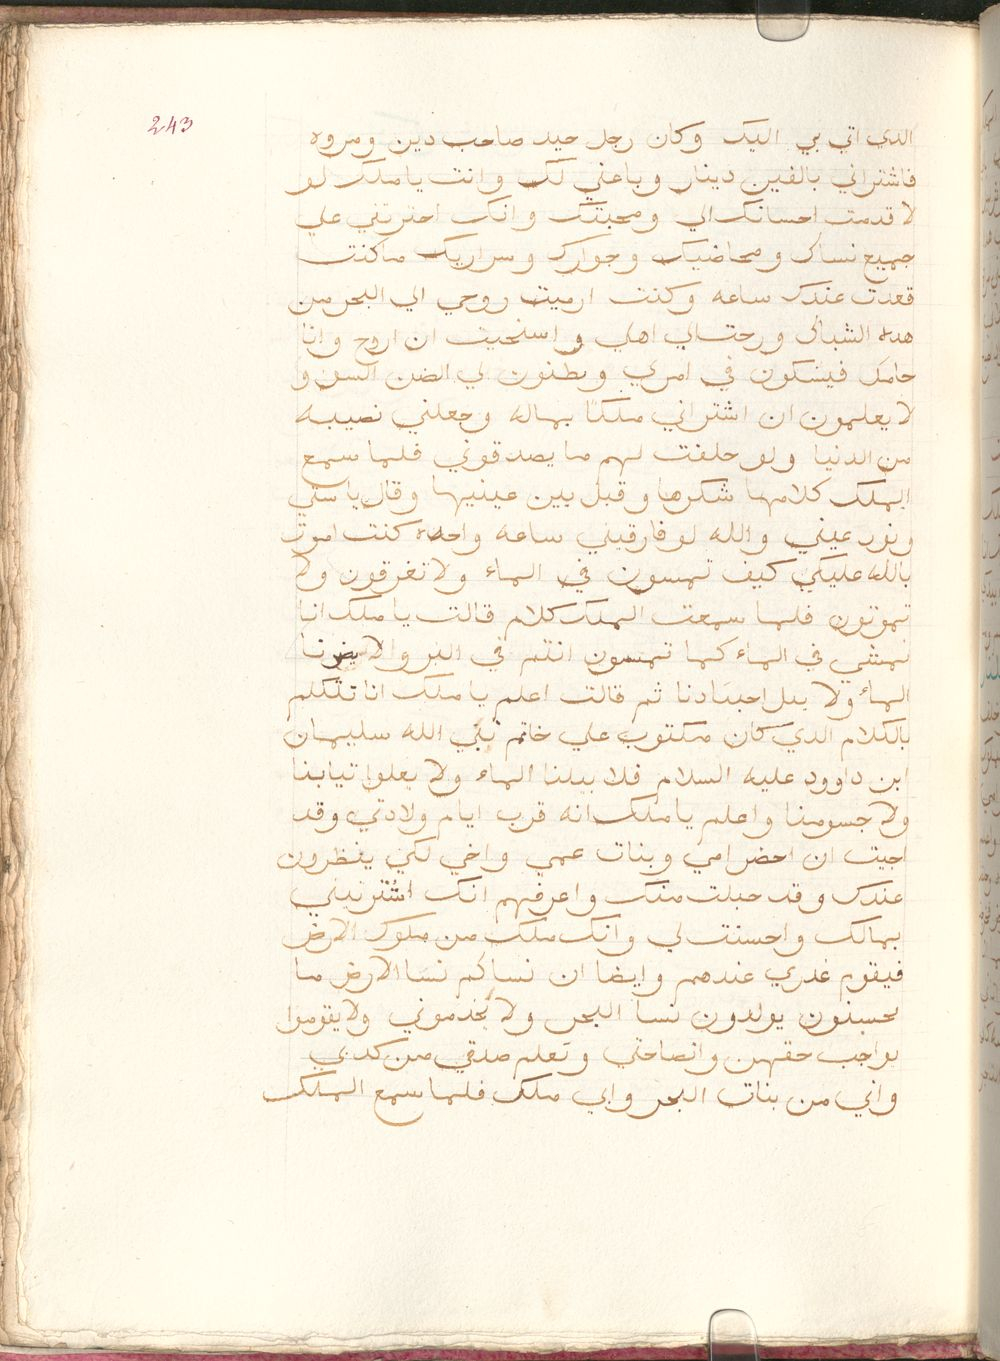 243
الدي اتي بي اليك وكان رجل جيد صاحب دين ومروه
فاشتراني بالفين دينار وباعني لك وانت يا ملك لو
لا قدمت احسانك الي ومحبتك وانك اخترتني علي
جميع نساك ومحاضيك وجوارك وسراريك ما كنت
قعدت عندك ساعه وكنت ارميت روحي الي البحر من
هده الشباك ورحت الي اهلي واستحيت ان اروح وانا
حامل فيشكون في امري ويظنون لي الضن السو و
لا يعلمون ان اشتراني ملكا بماله وجعلني نصيبه
من الدنيا ولو حلفت لهم ما يصدقوني فلما سمع
الملك كلامها شكرها وقبل بين عينيها وقال يا ستي
ونور عيني والله لو فارقيني ساعه واحده كنت اموت
بالله عليكي كيف تمسون في الماء ولا تغرقون ولا
تموتون فلما سمعت الملك كلام قالت يا ملك انا
نمشي في الماء كما تمسون انتم في البر ولا يضرنا
الماء ولا يبل اجسادنا ثم قالت اعلم يا ملك انا نتكلم
بالكلام الدي كان مكتوب علي خاتم نبي الله سليمان
ابن داوود عليه السلام فلا يبلنا الماء ولا يعلوا تيابنا
ولا جسومنا واعلم يا ملك انه قرب ايام ولادتي وقد
اجيت ان احضر امي وبنات عمي واخي لكي ينظرون
عندك وقد حبلت منك واعرفهم انك اشتريتني
بمالك واحسنت لي وانك ملك من ملوك الارض
فيقوم غدري عندهم وايضا ان نساكم نسا الارض ما
يحسنون يولدون نسا البحر ولا يخدموني ولا يقوموا
بواجب حقهن وانصاحتي وتعلم صدقي من كدبي
واني من بنات البحر وابي ملك فلما سمع الملك